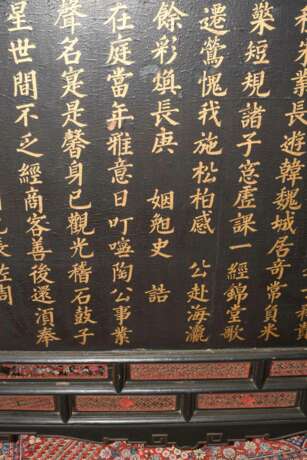 業長遊韓魏城居奇常負米
藥短規諧子窓虛課一經錦堂歌
遷鶯愧我施松柏感 公赴海瀛
餘彩煥長庚 姻勉史 誥
在庭當年雅意日叮嚀陶公事業
聲名寔是馨身已觀光稽石鼓子
星世間不乏經商客善後還湏奉